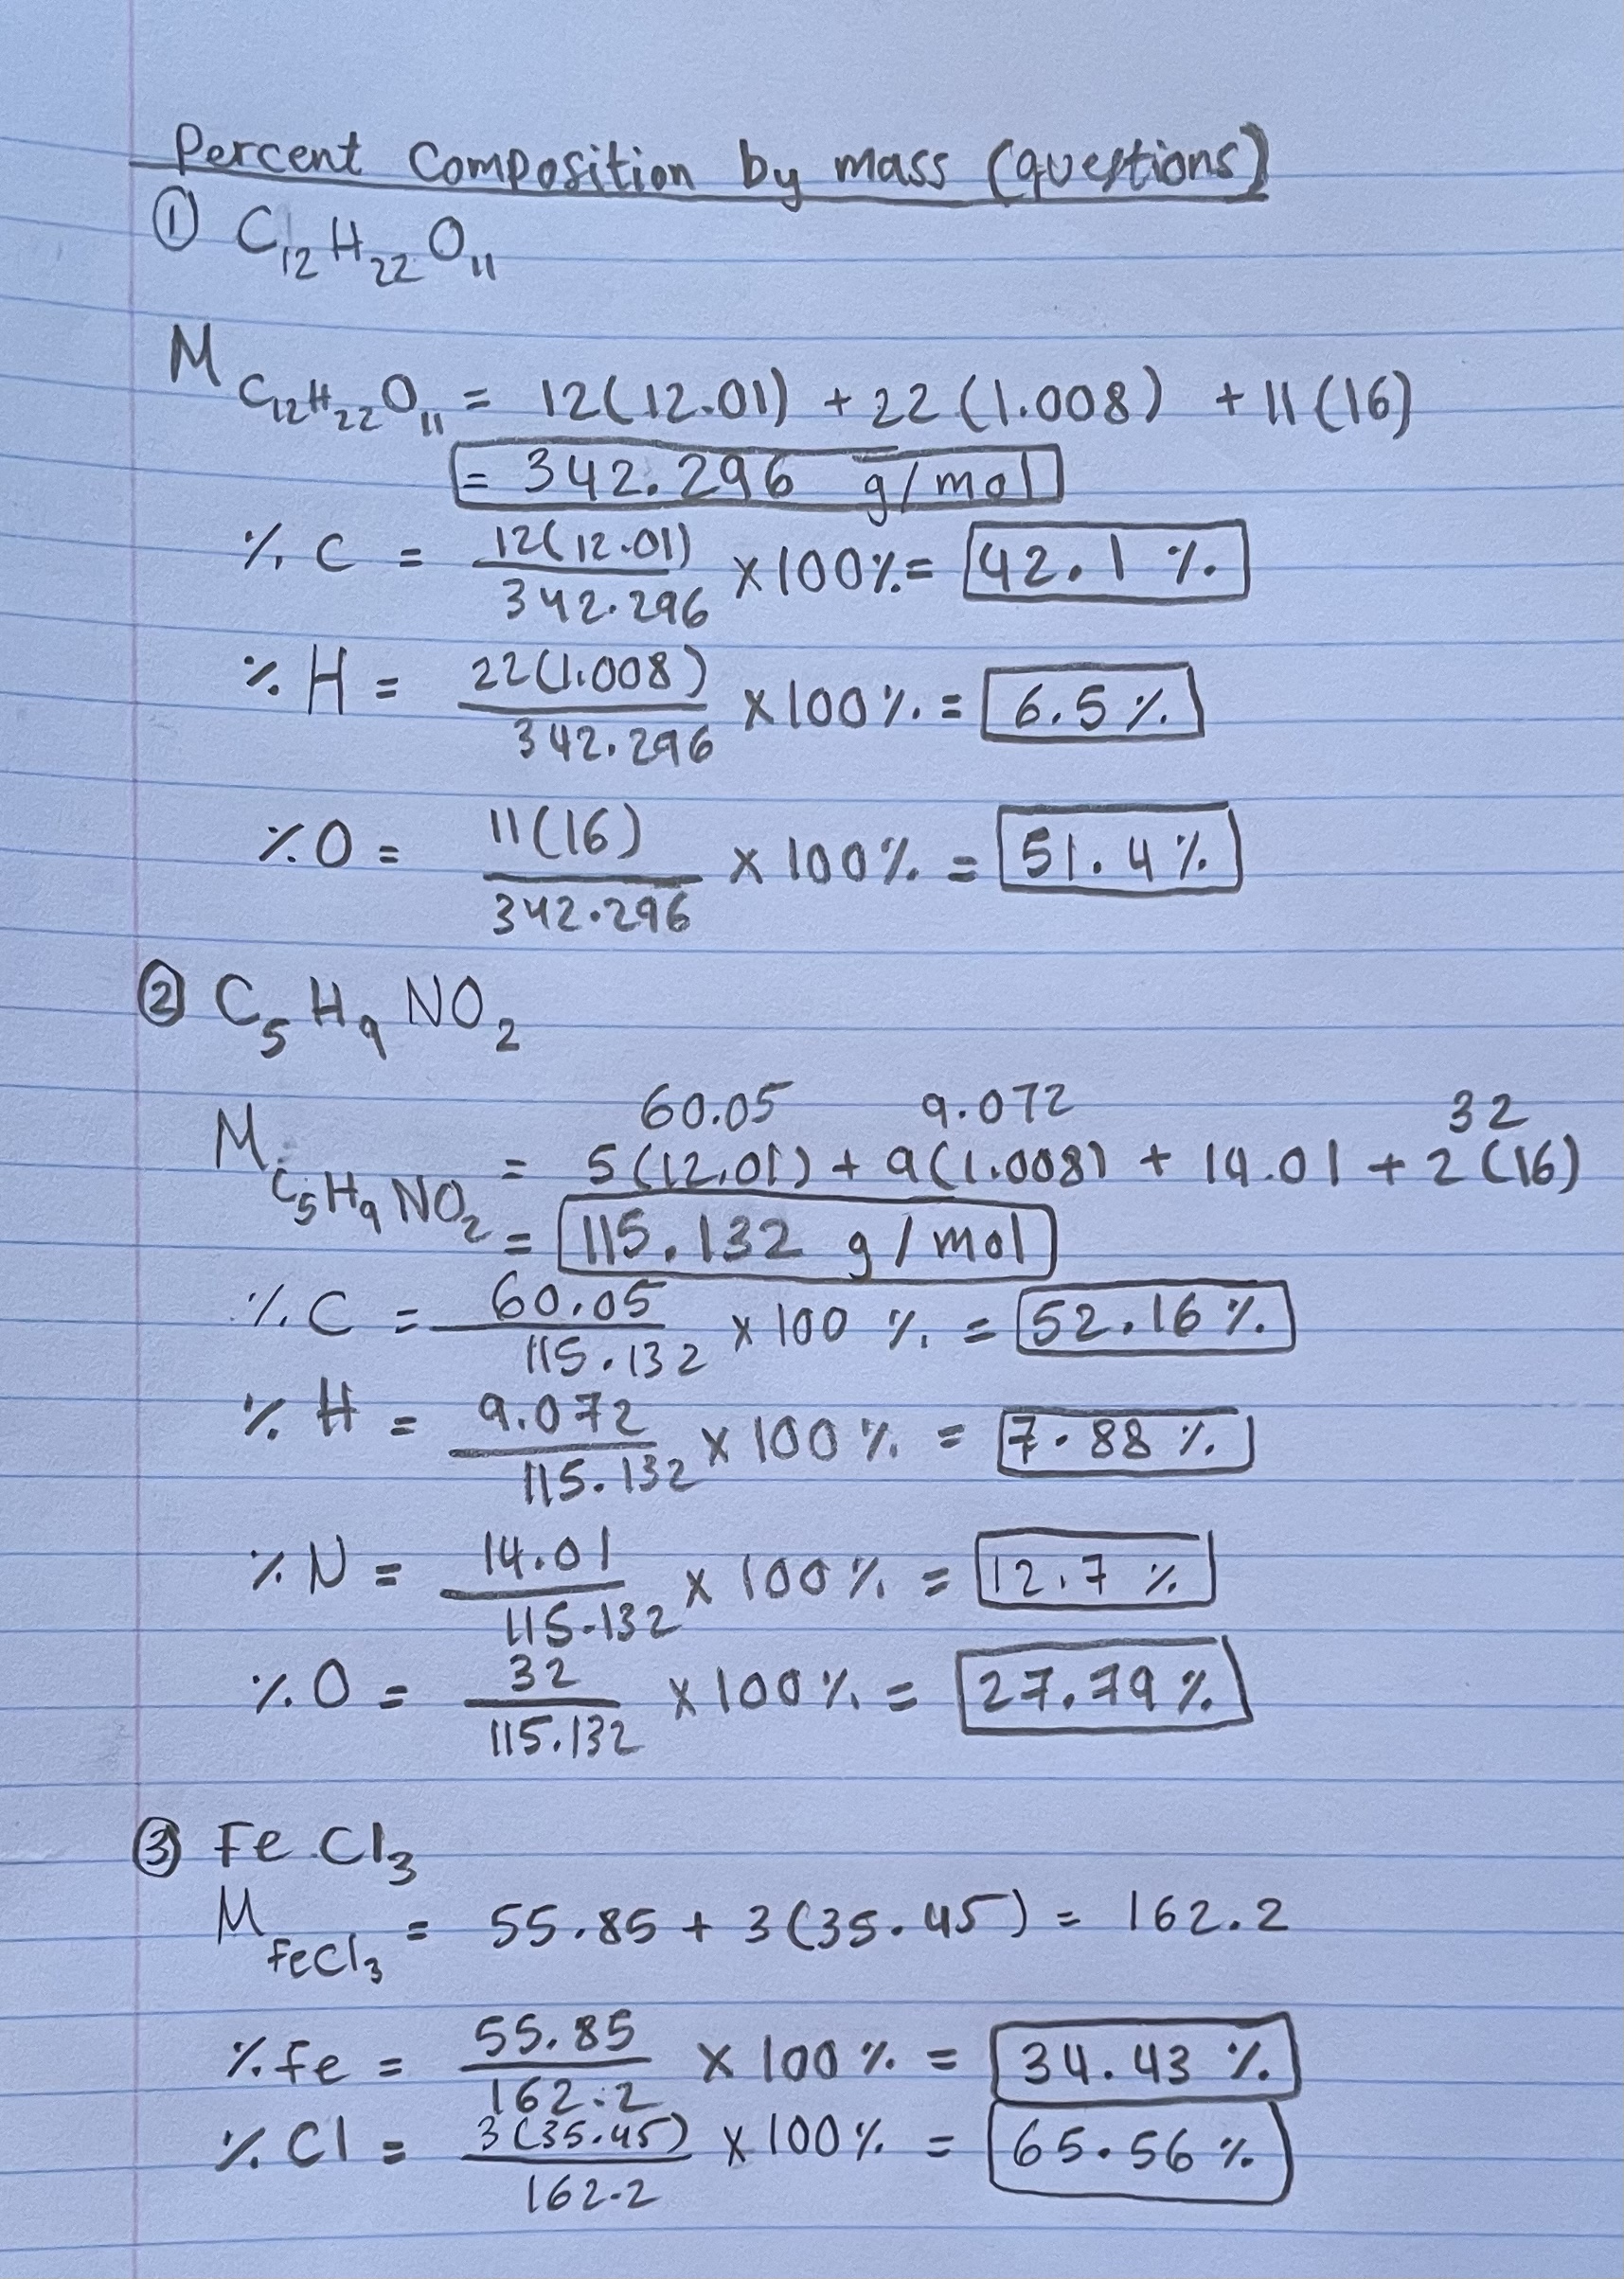 Percent Composition by mass (questions)
① C₁₂H₂₂O₁₁
M C₁₂H₂₂O₁₁ = 12(12.01) + 22(1.008) + 11(16)
= 342.296 g/mol
% C = 12(12.01) / 342.296 × 100% = 42.1 %
% H = 22(1.008) / 342.296 × 100% = 6.5 %
% O = 11(16) / 342.296 × 100% = 51.4 %
② C₅H₉NO₂
60.05 9.072 32
M C₅H₉NO₂ = 5(12.01) + 9(1.008) + 14.01 + 2(16)
= 115.132 g/mol
% C = 60.05 / 115.132 × 100 % = 52.16 %
% H = 9.072 / 115.132 × 100 % = 7.88 %
% N = 14.01 / 115.132 × 100 % = 12.7 %
% O = 32 / 115.132 × 100 % = 27.79 %
③ FeCl₃
M FeCl₃ = 55.85 + 3(35.45) = 162.2
% Fe = 55.85 / 162.2 × 100 % = 34.43 %
% Cl = 3(35.45) / 162.2 × 100 % = 65.56 %